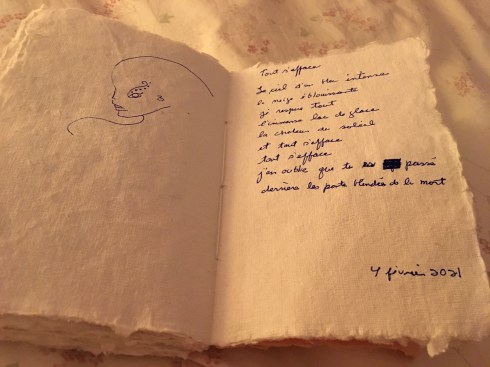 Tout s'efface
Le ciel d'un bleu intense
la neige éblouissante
je respire tout
l'immense lac de glace
la chaleur du soleil
et tout s'efface
tout s'efface
j'en oublie que tu es passé
derrière les portes blindées de la mort
4 février 2021